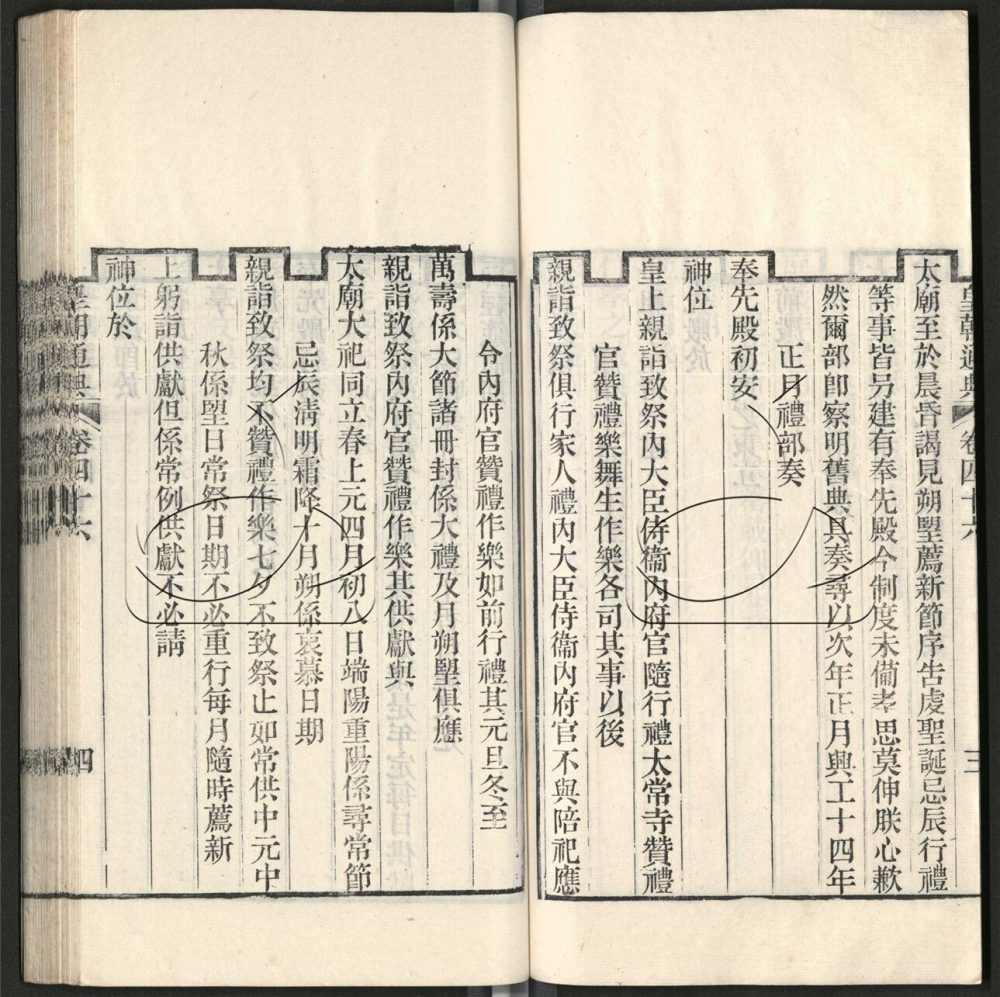 皇朝通典 卷四十六 三
太廟至於晨昏謁見朔望薦新節序告虔聖誕忌辰行禮
等事皆另建有奉先殿今制度未備孝思莫伸朕心歉
然爾部卽察明舊典具奏尋以次年正月興工十四年
正月禮部奏
奉先殿初安
神位
皇上親詣致祭內大臣侍衞內府官隨行禮太常寺贊禮
官贊禮樂舞生作樂各司其事以後
親詣致祭俱行家人禮內大臣侍衞內府官不與陪祀應
令內府官贊禮作樂如前行禮其元旦冬至
萬壽係大節諸冊封係大禮及月朔望俱應
親詣致祭內府官贊禮作樂其供獻與
太廟大祀同立春上元四月初八日端陽重陽係尋常節
忌辰淸明霜降十月朔係哀慕日期
親詣致祭均不贊禮作樂七夕不致祭止如常供中元中
秋係望日常祭日期不必重行每月隨時薦新
上躬詣供獻但係常例供獻不必請
神位於
皇朝通典 卷四十六 四